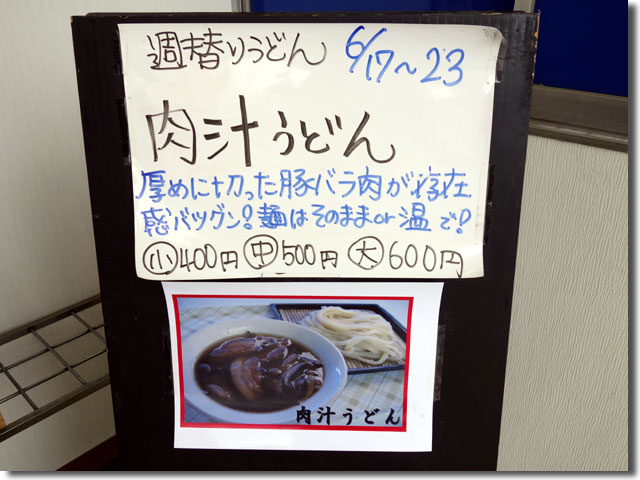 週替りうどん 6/17〜23
肉汁うどん
厚めに切った豚バラ肉が存在
感バツグン!麺はそのままor温で!
小400円 中500円 大600円
肉汁うどん